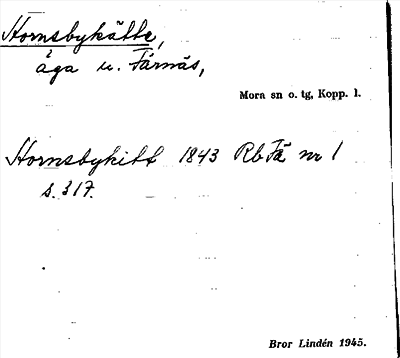 Hornsbykätte,
äga u. Färnäs,
Mora sn o. tg, Kopp. l.
Hornsbykitt 1843 Rb Fä nr 1
s. 317.
Bror Lindén 1945.